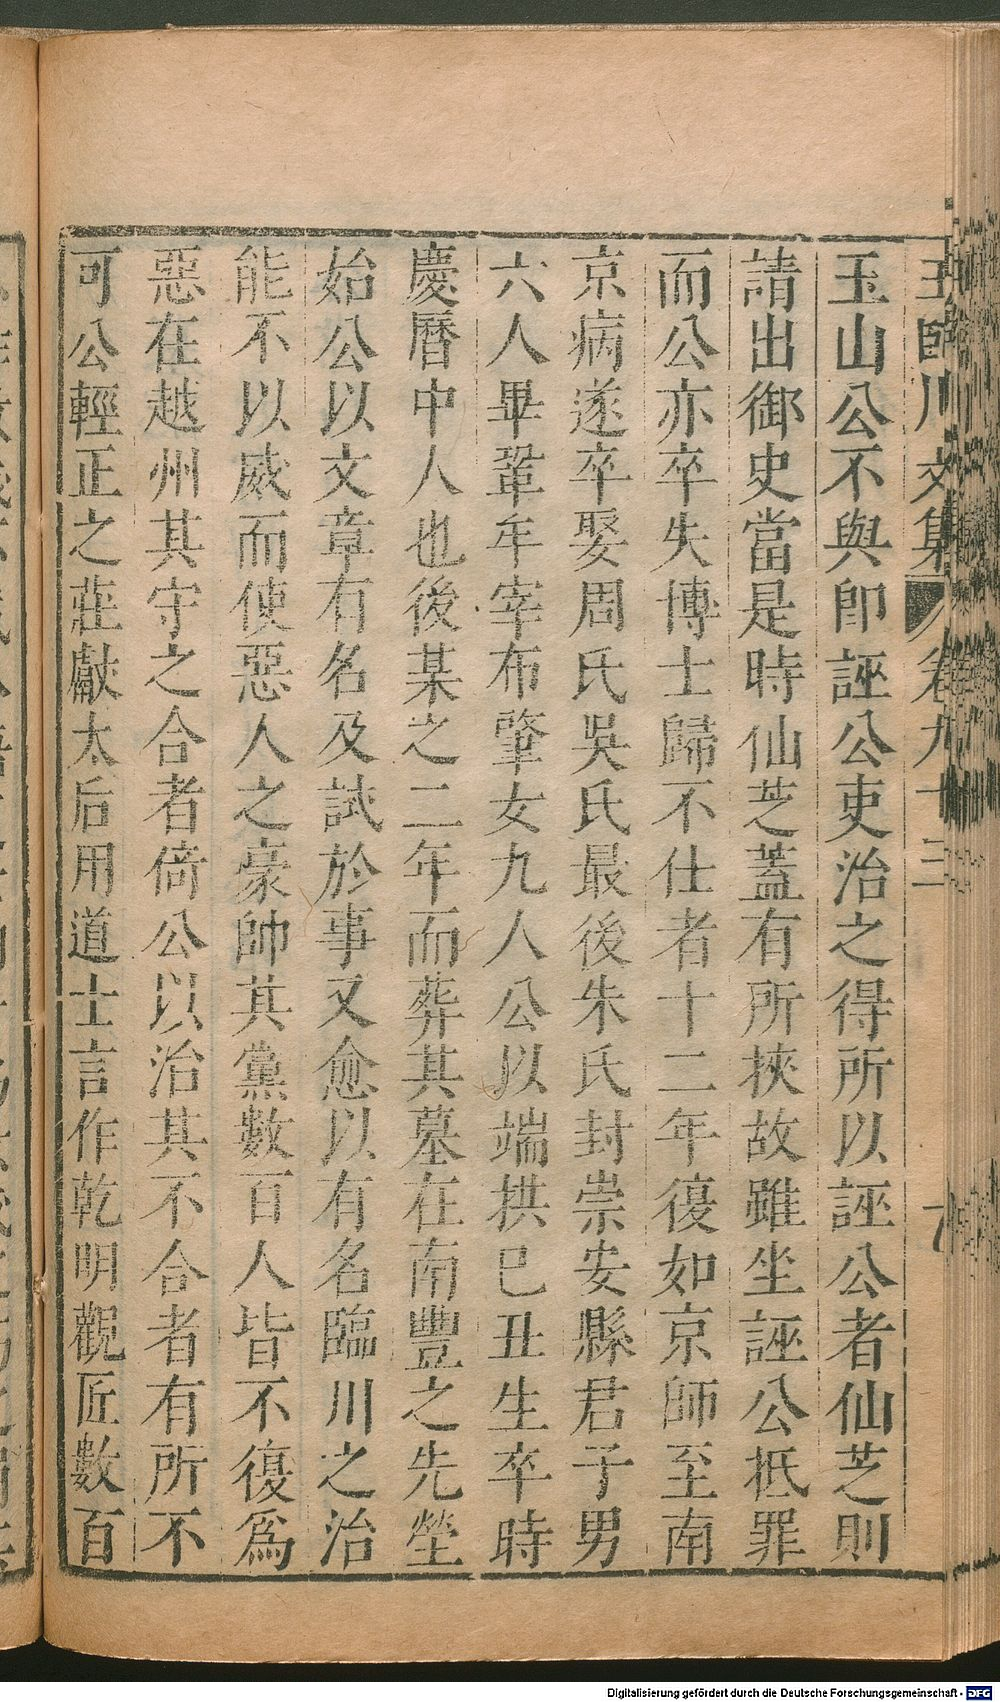 王臨川文集 卷九十三
玉山公不與即誣公吏治之得所以誣公者仙芝則
請出御史當是時仙芝蓋有所挾故雖坐誣公抵罪
而公亦卒失博士歸不仕者十二年復如京師至南
京病遂卒娶周氏吳氏最後朱氏封崇安縣君子男
六人畢鞏牟宰布肇女九人公以端拱巳丑生卒時
慶曆中人也後某之二年而葬其墓在南豐之先塋
始公以文章有名及試於事又愈以有名臨川之治
能不以威而使惡人之豪帥其黨數百人皆不復爲
惡在越州其守之合者倚公以治其不合者有所不
可公輕正之莊獻太后用道士言作乾明觀匠數百
Digitalisierung gefördert durch die Deutsche Forschungsgemeinschaft - DFG